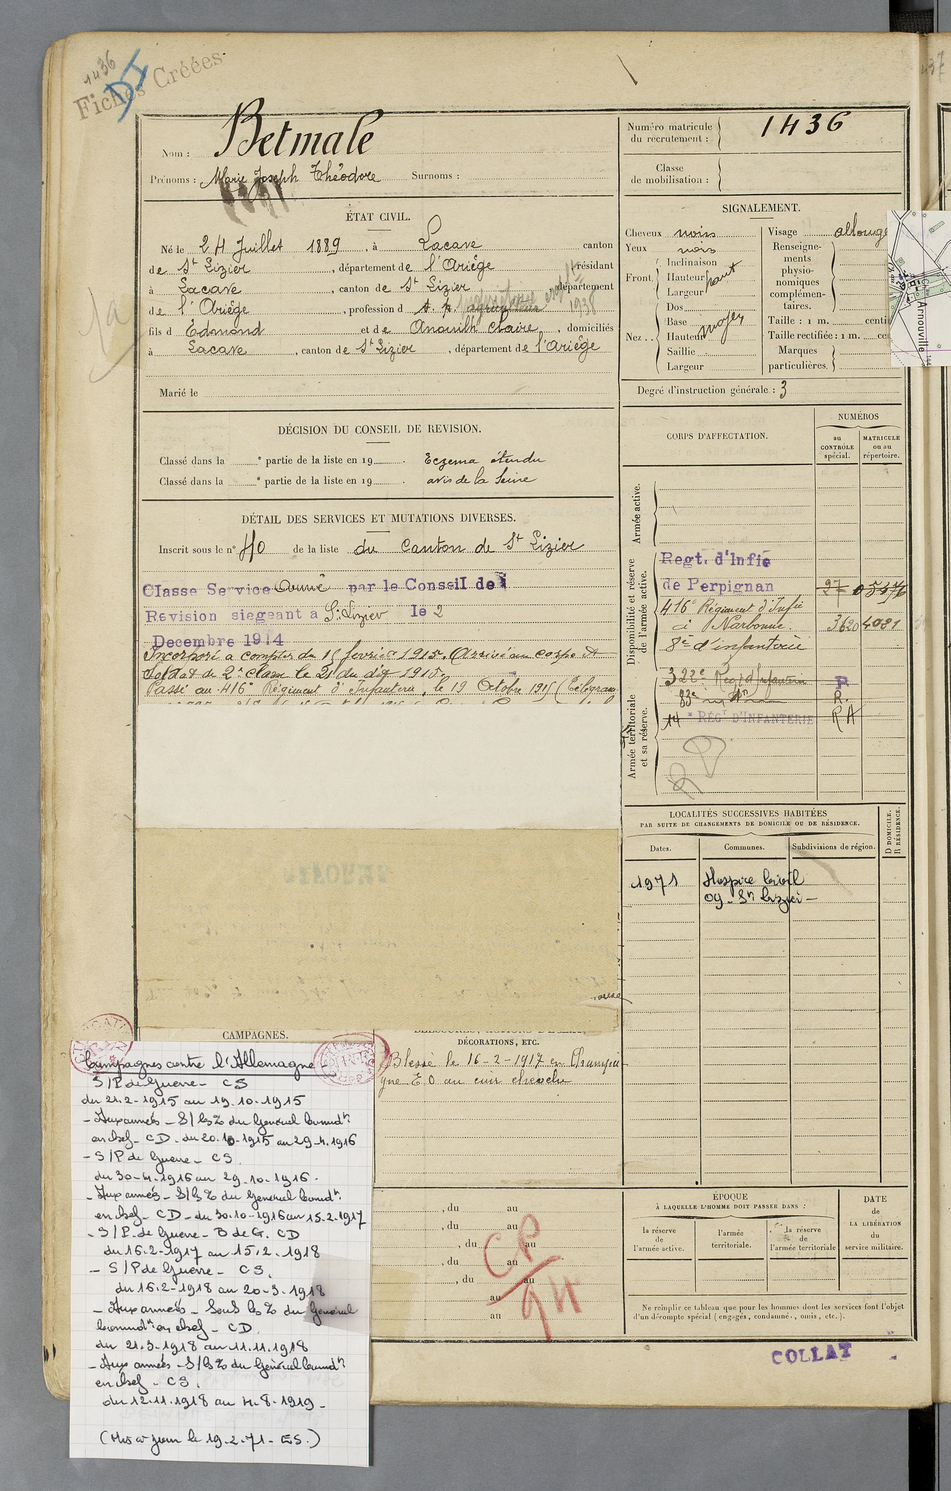 1436
Fiches Créées
Nom : Betmale
Prénoms : Marie Joseph Théodore Surnoms :
ÉTAT CIVIL.
Né le 24 Juillet 1889, à Lacave canton
de St Lizier, département de l'Ariège résidant
à Lacave, canton de St Lizier département
de l'Ariège, profession d
1938
fils d Edmond et de Anouilh Claire, domiciliés
à Lacave, canton de St Lizier, département de l'Ariège
Marié le
DÉCISION DU CONSEIL DE REVISION.
Classé dans la e partie de la liste en 19 . Eczema étendu
Classé dans la e partie de la liste en 19 . avis de la Seine
DÉTAIL DES SERVICES ET MUTATIONS DIVERSES.
Inscrit sous le n° 40 de la liste du Canton de St Lizier
Classe Service Armé par le Conseil de
Revision siegeant à St Lizier le 2
Decembre 1914
Incorporé à compter du février 1915. Arrivé au corps et
soldat de 2e classe le 21 du dit 1915.
Passé au 416e Régiment d'Infanterie, le 19 Octobre 1915
CAMPAGNES.
Campagnes contre l'Allemagne
S/P de Guerre - CS
du 21-2-1915 au 19.10.1915
- Aux armées - S/ls Z du Général Commdt
en chef - CD - du 20.10.1915 au 29.4.1916
- S/P de Guerre - CS
du 30-4-1916 au 29-10-1916.
- Aux armées - S/ls Z du Général Commdt
en chef - CD - du 30.10-1916 au 15.2.1917
- S/P de Guerre - B de G. CD
du 16-2-1917 au 15.2.1918
- S/P de Guerre - CS.
du 16.2-1918 au 20-3-1918
- Aux armées - Sous ls Z du Général
Commdt en chef - CD.
du 21-3-1918 au 11.11.1918
- Aux armées - S/ls Z du Général Commdt
en chef - CS.
du 12.11.1918 au 4-8-1919 -
(Mis à jour le 19-2-71 - ES.)
DÉCORATIONS, ETC.
Blessé le 16-2-1917 en Champa
gne E.O au cuir chevelu
, du au
, du au
, du au
, du au
, du au
au
au
CP
94
Numéro matricule
du recrutement : 1436
Classe
de mobilisation :
SIGNALEMENT.
Cheveux noirs
Yeux noirs
Front Inclinaison
Hauteur haut
Largeur
Nez Dos
Base
Hauteur moyen
Saillie
Largeur
Visage allongé
Renseigne-
ments
physio-
nomiques
complémen-
taires.
Taille : 1 m. centi
Taille rectifiée : 1 m. cen
Marques
particulières.
Arnouville
Degré d'instruction générale : 3
CORPS D'AFFECTATION.
NUMÉROS
au
CONTRÔLE
spécial.
MATRICULE
ou au
répertoire.
Armée active.
Disponibilité et réserve
de l'armée active.
Regt. d'Infie
de Perpignan
416e Régiment d'Infie
à Narbonne. 3620 4081
8e d'infanterie
Armée territoriale
et sa réserve.
322e Regt d'Infanterie R
83e R.
14e RÉGT D'INFANTERIE RA
LOCALITÉS SUCCESSIVES HABITÉES
PAR SUITE DE CHANGEMENTS DE DOMICILE OU DE RÉSIDENCE.
Dates.
Communes.
Subdivisions de région.
D DOMICILE.
R RÉSIDENCE.
1971 Hospice Civil
09 - St Lizier -
ÉPOQUE
À LAQUELLE L'HOMME DOIT PASSER DANS :
la réserve
de
l'armée active.
l'armée
territoriale.
la réserve
de
l'armée territoriale
DATE
de
LA LIBÉRATION
du
service militaire.
Ne remplir ce tableau que pour les hommes dont les services font l'objet
d'un décompte spécial (engagés, condamnés, omis, etc.).
COLLAT